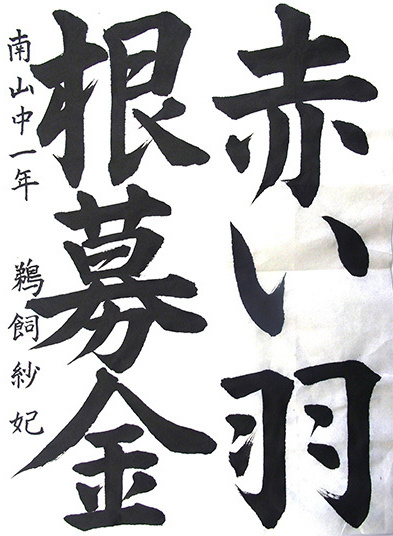 赤い羽
根募金
南山中一年 鵜飼紗妃